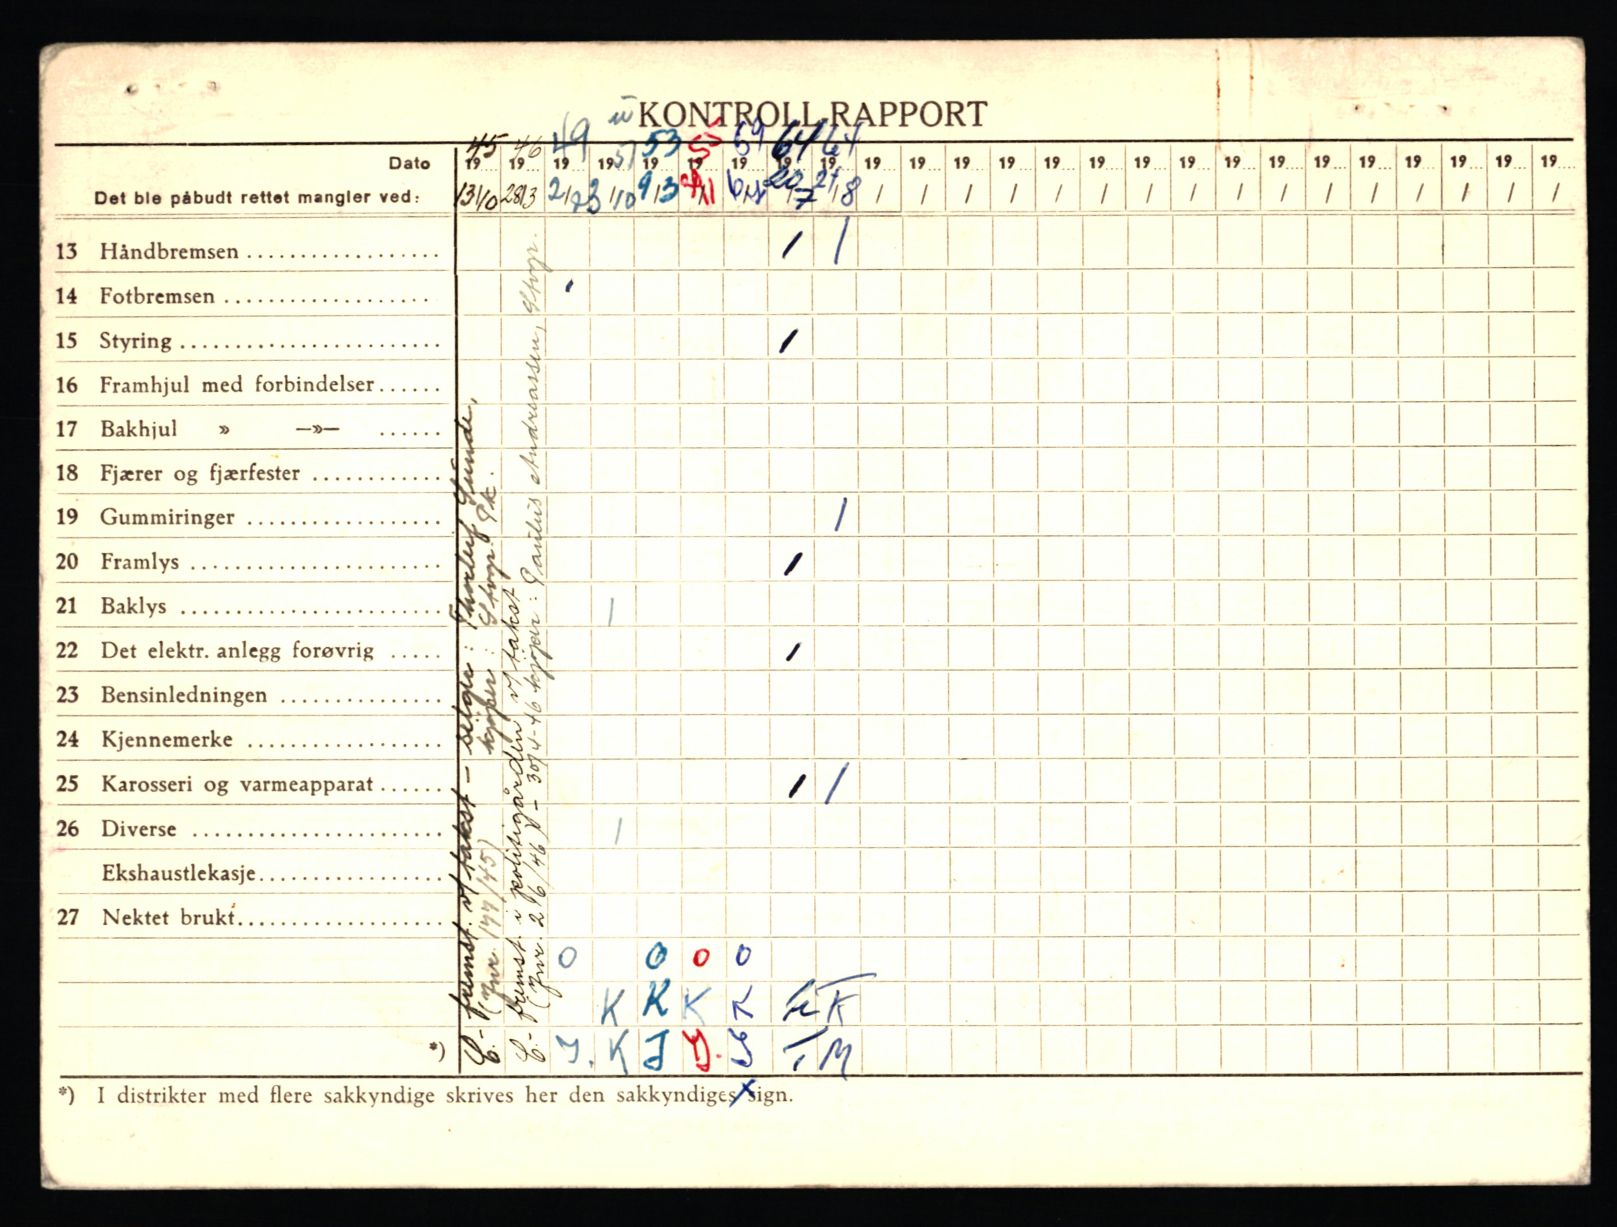 KONTROLL-RAPPORT
Dato 19 45 19 46 19 49 19 51 19 53 19 55 19 59 19 64 19 64 19 19 19 19 19 19 19
Det ble påbudt rettet mangler ved: 13/10 28/3 3/10 9/3 20/7 / / / / / / /
13 Håndbremsen / /
14 Fotbremsen
15 Styring /
16 Framhjul med forbindelser
17 Bakhjul » —»—
18 Fjærer og fjærfester
19 Gummiringer /
20 Framlys /
21 Baklys /
22 Det elektr. anlegg forøvrig /
23 Bensinledningen
24 Kjennemerke
25 Karosseri og varmeapparat / /
26 Diverse /
Ekshaustlekasje
27 Nektet brukt
O O O O
K K K K K
*) K M
E.- fremst. v/ takst – selger: Thorleif Sunde,
(jnr. 177/45) kjøper:
E.- fremst. i politigården v/ takst
(jnr. 26/46) – 30/4-46 kjøper: Paulus Andreassen,
*) I distrikter med flere sakkyndige skrives her den sakkyndiges sign.